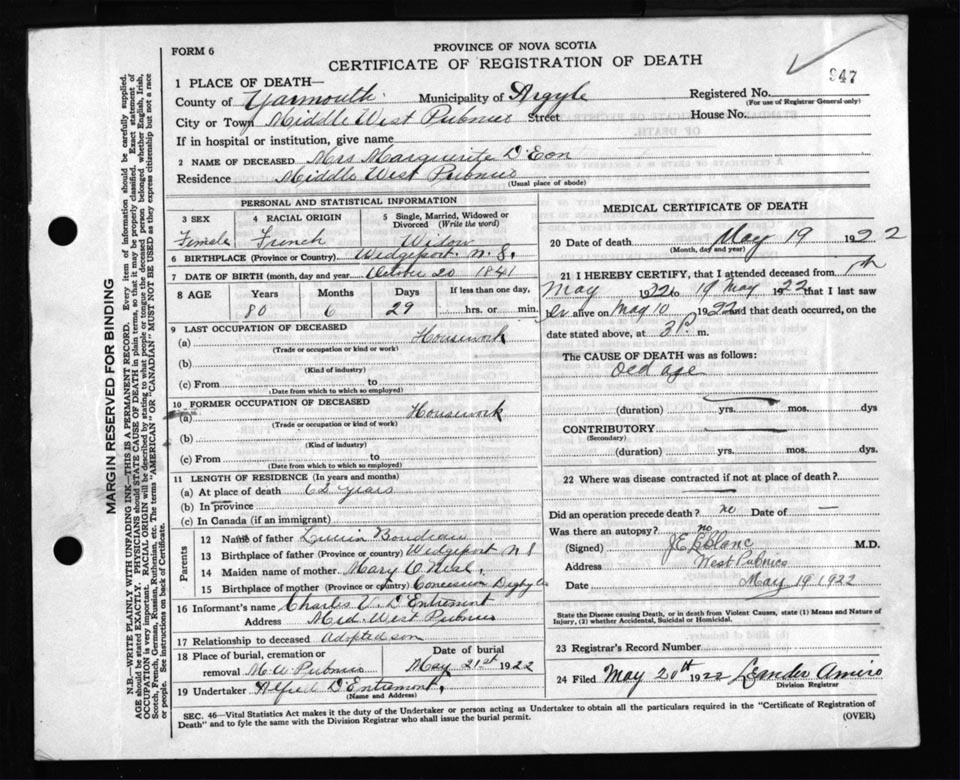 FORM 6
PROVINCE OF NOVA SCOTIA
CERTIFICATE OF REGISTRATION OF DEATH
947
1 PLACE OF DEATH—
County of Yarmouth Municipality of Argyle Registered No.
(For use of Registrar General only)
City or Town Middle West Pubnico Street House No.
If in hospital or institution, give name
2 NAME OF DECEASED Mrs Marguerite D'Eon
Residence Middle West Pubnico
(Usual place of abode)
PERSONAL AND STATISTICAL INFORMATION
3 SEX 4 RACIAL ORIGIN 5 Single, Married, Widowed or Divorced (Write the word)
Female French Widow
6 BIRTHPLACE (Province or Country) Wedgeport N.S.
7 DATE OF BIRTH (month, day and year) October 20 1841
8 AGE Years Months Days If less than one day,
80 6 29 hrs. or min.
9 LAST OCCUPATION OF DECEASED
(a) Housework
(Trade or occupation or kind of work)
(b)
(Kind of industry)
(c) From to
(Date from which to which so employed)
10 FORMER OCCUPATION OF DECEASED
(a) Housework
(Trade or occupation or kind of work)
(b)
(Kind of industry)
(c) From to
(Date from which to which so employed)
11 LENGTH OF RESIDENCE (In years and months)
(a) At place of death years
(b) In province
(c) In Canada (if an immigrant)
Parents
12 Name of father Boudreau
13 Birthplace of father (Province or country) Wedgeport N S
14 Maiden name of mother Mary O'Neal
15 Birthplace of mother (Province or country) Concession Digby Co
16 Informant's name Charles V. D'Entremont
Address Mid. West Pubnico
17 Relationship to deceased Adopted son
18 Place of burial, cremation or removal M. W. Pubnico Date of burial May 21st 1922
19 Undertaker Alfred D'Entremont
(Name and Address)
MEDICAL CERTIFICATE OF DEATH
20 Date of death May 19 1922
(Month, day and year)
21 I HEREBY CERTIFY, that I attended deceased from
May 1922 to 19 May 1922 that I last saw
her alive on May 10 1922 and that death occurred, on the
date stated above, at 2 P. m.
The CAUSE OF DEATH was as follows:
Old age
(duration) yrs. mos. dys
CONTRIBUTORY
(Secondary)
(duration) yrs. mos. dys.
22 Where was disease contracted if not at place of death?
Did an operation precede death? no Date of —
Was there an autopsy? no
(Signed) J E LeBlanc M.D.
Address West Pubnico
Date May 19 1922
State the Disease causing Death, or in death from Violent Causes, state (1) Means and Nature of Injury, (2) whether Accidental, Suicidal or Homicidal.
23 Registrar's Record Number
24 Filed May 20th 1922 Leander Amiro
Division Registrar
SEC. 46—Vital Statistics Act makes it the duty of the Undertaker or person acting as Undertaker to obtain all the particulars required in the "Certificate of Registration of
Death" and to fyle the same with the Division Registrar who shall issue the burial permit.
(OVER)
MARGIN RESERVED FOR BINDING
N.B.—WRITE PLAINLY, WITH UNFADING INK—THIS IS A PERMANENT RECORD. Every item of information should be carefully supplied.
AGE should be stated EXACTLY. PHYSICIANS should STATE CAUSE OF DEATH in plain terms, so that it may be properly classified. Exact statement of
OCCUPATION is very important. RACIAL ORIGIN will be described by stating to what people or tongue the deceased person belonged whether English, Irish,
Scotch, French, German, Russian, Ruthenian, etc. The terms "AMERICAN" OR "CANADIAN" MUST NOT BE USED as they express citizenship but not a race
or people. See instructions on back of Certificate.